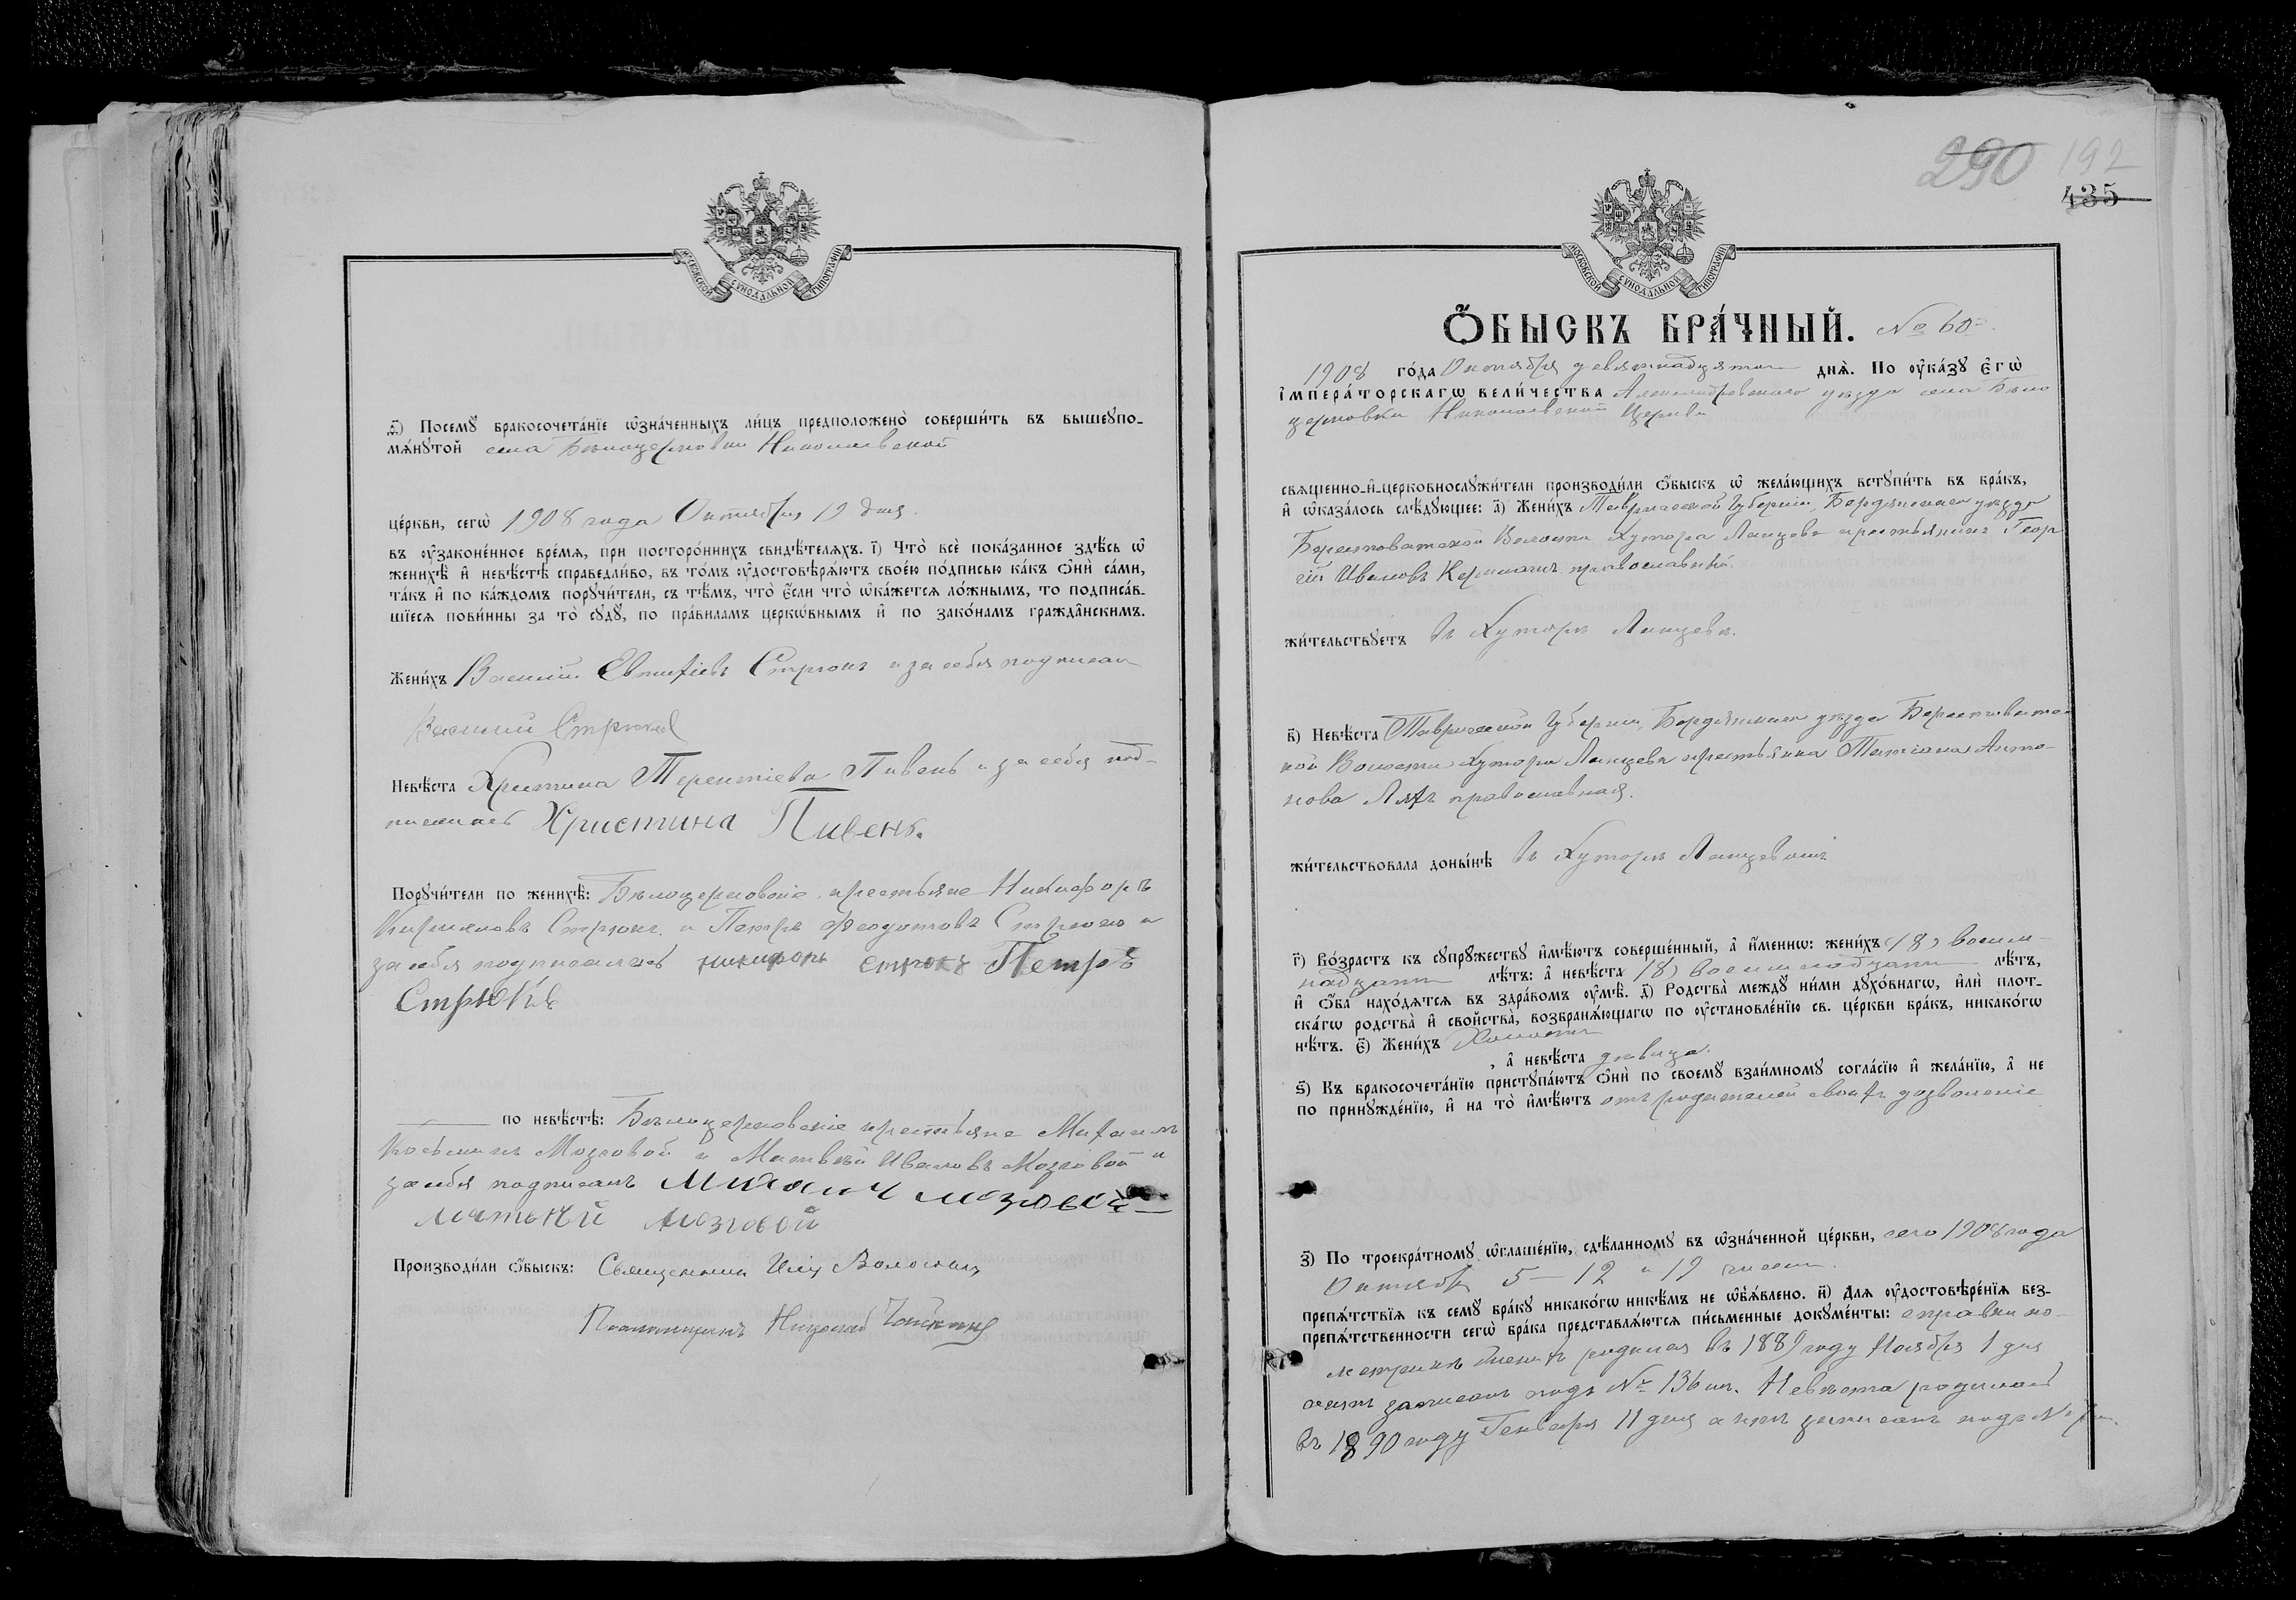 МОСКОВСКОЙ СУНОДАЛЬНОЙ ТИПОГРАФІИ
ѳ҃) Посемꙋ̀ бракосочета́нїе ѡ҆зна́ченныхъ ли́цъ предположено̀ соверши́ть въ вышеꙋпо-
мѧ́нꙋтой села Бѣлоцерковки Николаевской
це́ркви, сегѡ̀ 1908 года Октября 19 дня.
въ ᲂу҆зако́ненное вре́мѧ, при посторо́ннихъ свидѣ́телѧхъ. і҃) Что̀ всѐ пока́занное здѣ́сь ѡ҆
женихѣ̀ и҆ невѣ́стѣ справедли́во, въ то́мъ ᲂу҆достовѣрѧ́ютъ свое́ю по́дписью ка́къ ѻ҆нѝ са́ми,
та́къ и҆ по ка́ждомъ порꙋчи́тели, съ тѣ́мъ, что̀ є҆́сли что̀ ѡ҆ка́жетсѧ ло́жнымъ, то подписа́в-
шїесѧ пови́нны за то̀ сꙋдꙋ̀, по пра́виламъ церкѡ́внымъ и҆ по зако́намъ гражда́нскимъ.
Жени́хъ Василій Евтихіевъ Стрюкъ и за себя подписал
Василий Стрюкъ
Невѣ́ста Христина Терентіева Пивень и за себя под-
писалась Христина Пивень.
Порꙋчи́тели по женихѣ̀: Бѣлоцерковскіе крестьяне Никифоръ
Стрюкъ и Петръ Федотовъ Стрюкъ и
за себя подписались Никифоръ Стрюкъ Петръ
Стрюкъ
по невѣ́стѣ: Бѣлоцерковскіе крестьяне Михаилъ
Козьминъ Мозговой и Матвѣй Ивановъ Мозговой и
за себя подписали Михаилъ Мозговой
Матвѣй Мозговой
Производи́ли ѻ҆́быскъ: Священникъ Илія
Псаломщикъ Николай
290 192
435
МОСКОВСКОЙ СУНОДАЛЬНОЙ ТИПОГРАФІИ
Ѻ҆БЫСКЪ БРА́ЧНЫЙ. № 60
1908 го́да Октября девятнадцатаго днѧ̀. По ᲂу҆ка́зꙋ Є҆гѡ̀
І҆мпера́торскагѡ вели́чества Александровскаго уѣзда села Бѣло
церковки Николаевской Церкви
свѧще́нно-и҆-церковнослꙋжи́тели производи́ли ѻ҆́быскъ ѡ҆ жела́ющихъ встꙋпи́ть въ бра́къ,
и҆ ѡ҆каза́лось слѣ́дꙋющее: а҃) Жени́хъ Таврической Губерніи, Бердянскаго уѣзда
Берестоватской Волости Хутора Ланцева крестьянинъ Геор
гій Ивановъ православный.
жи́тельствꙋетъ въ Хуторѣ Ланцевѣ.
в҃) Невѣ́ста Таврической Губерніи, Бердянскаго уѣзда Берестоватс-
кой Волости Хутора Ланцева крестьянка Татіана Анто-
нова Ляхъ православная.
жи́тельствовала доны́нѣ въ Хуторѣ Ланцевомъ
г҃) Во́зрастъ къ сꙋпрꙋ́жествꙋ и҆мѣ́ютъ соверше́нный, а҆ и҆́меннѡ: жени́хъ (18) восем-
надцати лѣ́тъ: а҆ невѣ́ста 18) восемнадцати лѣ́тъ,
и҆ ѻ҆́ба нахо́дѧтсѧ въ здра́вомъ ᲂу҆мѣ̀. д҃) Родства̀ междꙋ̀ ни́ми дꙋхо́внагѡ, и҆лѝ плот-
ска́гѡ родства̀ и҆ сво́йства̀, возбранѧ́ющагѡ по ᲂу҆становле́нїю св. це́ркви бра́къ, никако́гѡ
нѣ́тъ. є҃) Жени́хъ Холостъ
, а҆ невѣ́ста дѣвица.
ѕ҃) Къ бракосочета́нїю пристꙋпа́ютъ ѻ҆нѝ по своемꙋ̀ взаи́мномꙋ согла́сїю и҆ жела́нїю, а҆ не
по принꙋжде́нїю, и҆ на то̀ и҆мѣ́ютъ отъ родителей своихъ дозволеніе
з҃) По троекра́тномꙋ ѡ҆глаше́нїю, сдѣ́ланномꙋ въ ѡ҆зна́ченной це́ркви, сего 1908 года
Октября 5 — 12 и 19 чиселъ.
препѧ́тствїѧ къ семꙋ̀ бра́кꙋ никако́гѡ никѣ́мъ не ѡ҆б̾ѧ́влено. и҃) Длѧ ᲂу҆достовѣре́нїѧ без-
препѧ́тственности сегѡ̀ бра́ка представлѧ́ютсѧ пи́сьменные докꙋме́нты: справки по
метрикѣ Женихъ родился въ 1889 году Ноября 1 дня
актъ записанъ подъ № 136 м. Невѣста родилась
въ 1890 году Генваря 11 дня актъ записанъ подъ №